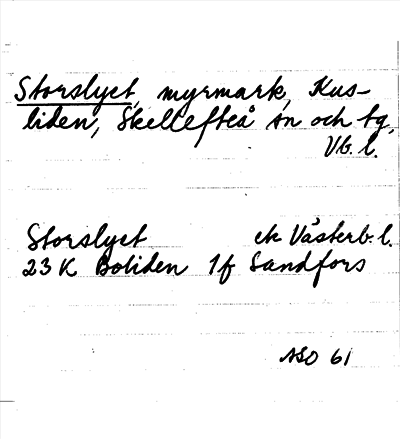 Storslyet, myrmark, Kus-
liden, Skellefteå sn och tg,
Vb. l.
Storslyet ek Västerb. l.
23 K Boliden 1f Sandfors
ASO 61